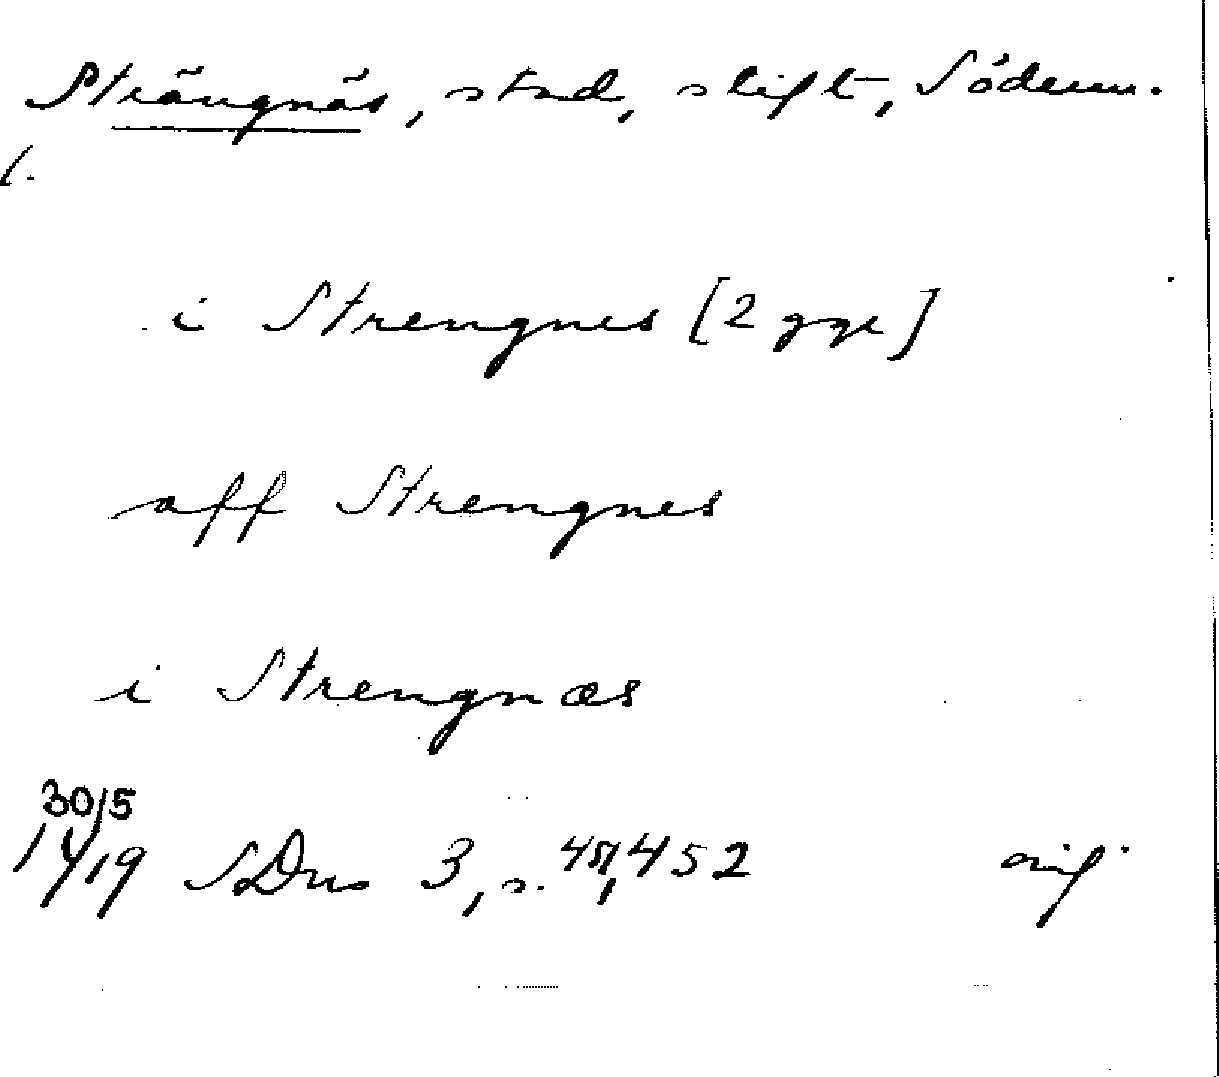 Strängnäs, stad, stift, Söderm.
l.
i Strengnes [2 ggr]
aff Strengnes
i Strengnæs
30/5
14/19 SDns 3, s. 451, 452 orig.